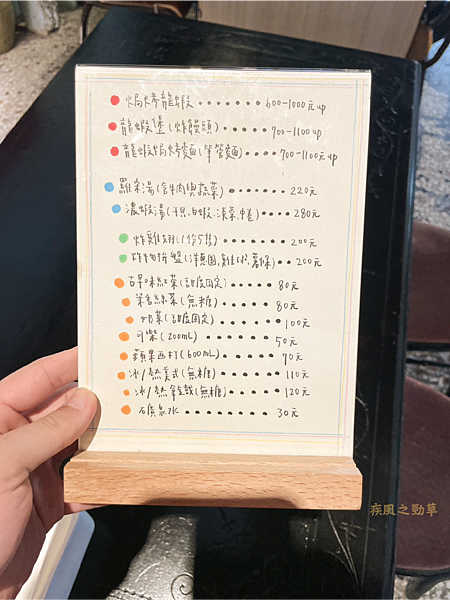 焗烤龍蝦・・・・・・・600-1000元up
龍蝦堡(炸饅頭)・・・・・700-1100up
龍蝦焗烤麵(筆管麵)・・・・700-1100元up
羅宋湯(含牛肉與蔬菜)・・・・・・220元
濃蝦湯(干貝、白蝦、淡菜、中卷)・・・・280元
炸雞翅(1份5隻)・・・・・・200元
炸物拼盤(洋蔥圈、雞球、薯條)・・200元
古早味紅茶(甜度固定)・・・・・80元
茉香綠茶(無糖)・・・・・・80元
奶茶(甜度固定)・・・・・・100元
可樂(200mL)・・・・・・50元
蘋果西打(600mL)・・・・・70元
冰/熱美式(無糖)・・・・・・110元
冰/熱拿鐵(無糖)・・・・・・120元
礦泉水・・・・・・・・30元
疾風之勁草